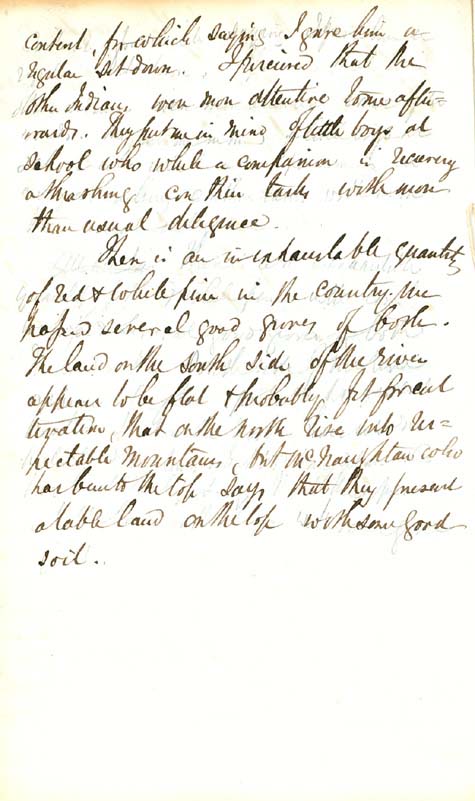 content, for which saying I gave him a
regular set down. I perceived that the
other Indians were more attentive to me after=
wards. They put me in mind of little boys at
school who while a companion is receiving
a thrashing con their tasks with more
than usual diligence.
There is an inexhaustable quantity
of red & white pine in the country. We
passed several good groves of both.
The land on the south side of the river
appears to be flat & probably fit for cul
tivation, that on the north rise into res=
pectable mountains, but McNaughtan who
has been to the top says that they present
a table land on the top with some good
soil.